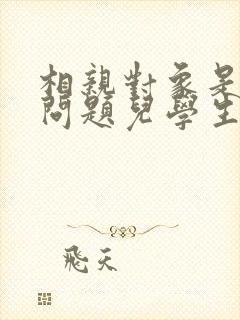 相親對象是
問題兒學生
飛天